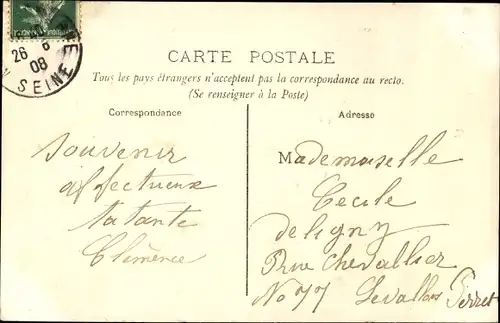 26 6
08
SEINE
CARTE POSTALE
Tous les pays étrangers n'acceptent pas la correspondance au recto.
(Se renseigner à la Poste)
Correspondance
souvenir
affectueux
tatante
Clémence
Adresse
Mademoiselle
Cecile
deligny
Rue Chevallier
No 77 Levallois Perret